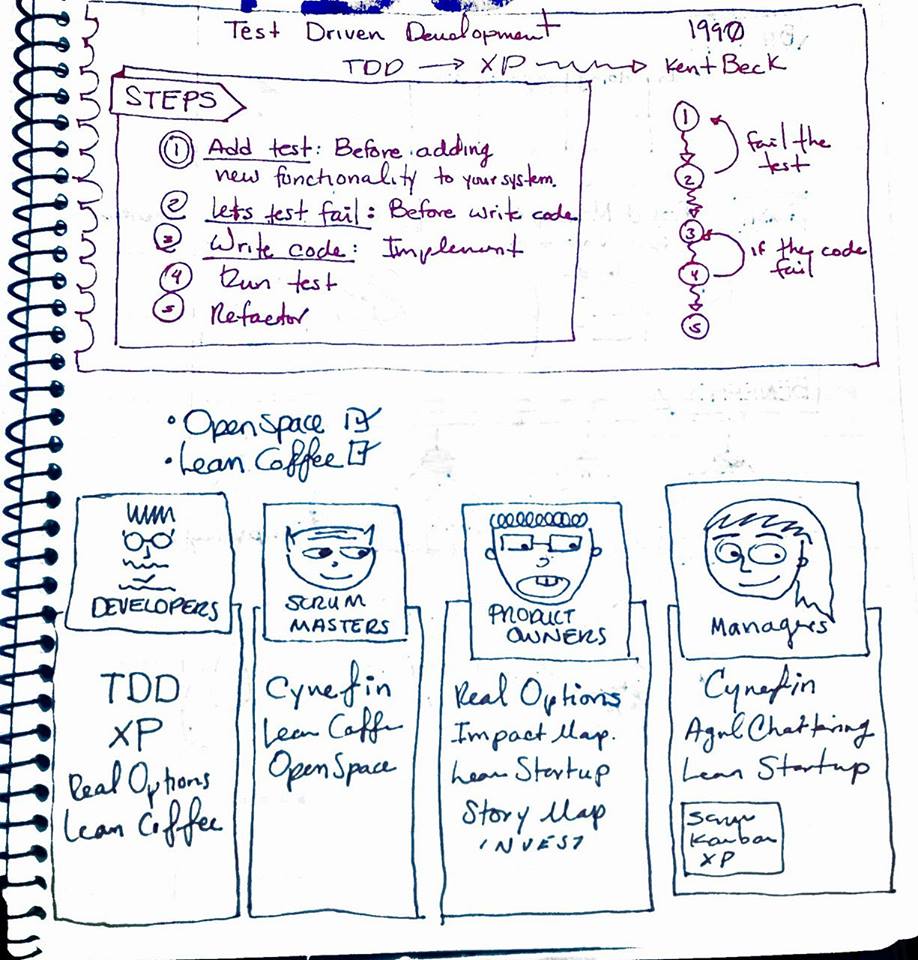 Test Driven Development 1990
TDD → XP → Kent Beck
STEPS
1 Add test: Before adding
new functionality to your system.
2 Lets test fail: Before write code
3 Write code: Implement
4 Run test
5 Refactor
1
2
3
4
5
fail the
test
if the code
fail
• OpenSpace
• Lean Coffee
DEVELOPERS
TDD
XP
Real Options
Lean Coffee
SCRUM
MASTERS
Cynefin
Lean Coffe
OpenSpace
PRODUCT
OWNERS
Real Options
Impact Map.
Lean Startup
Story Map
INVEST
Managres
Cynefin
Agul Chattering
Lean Startup
Scrum
Kanban
XP